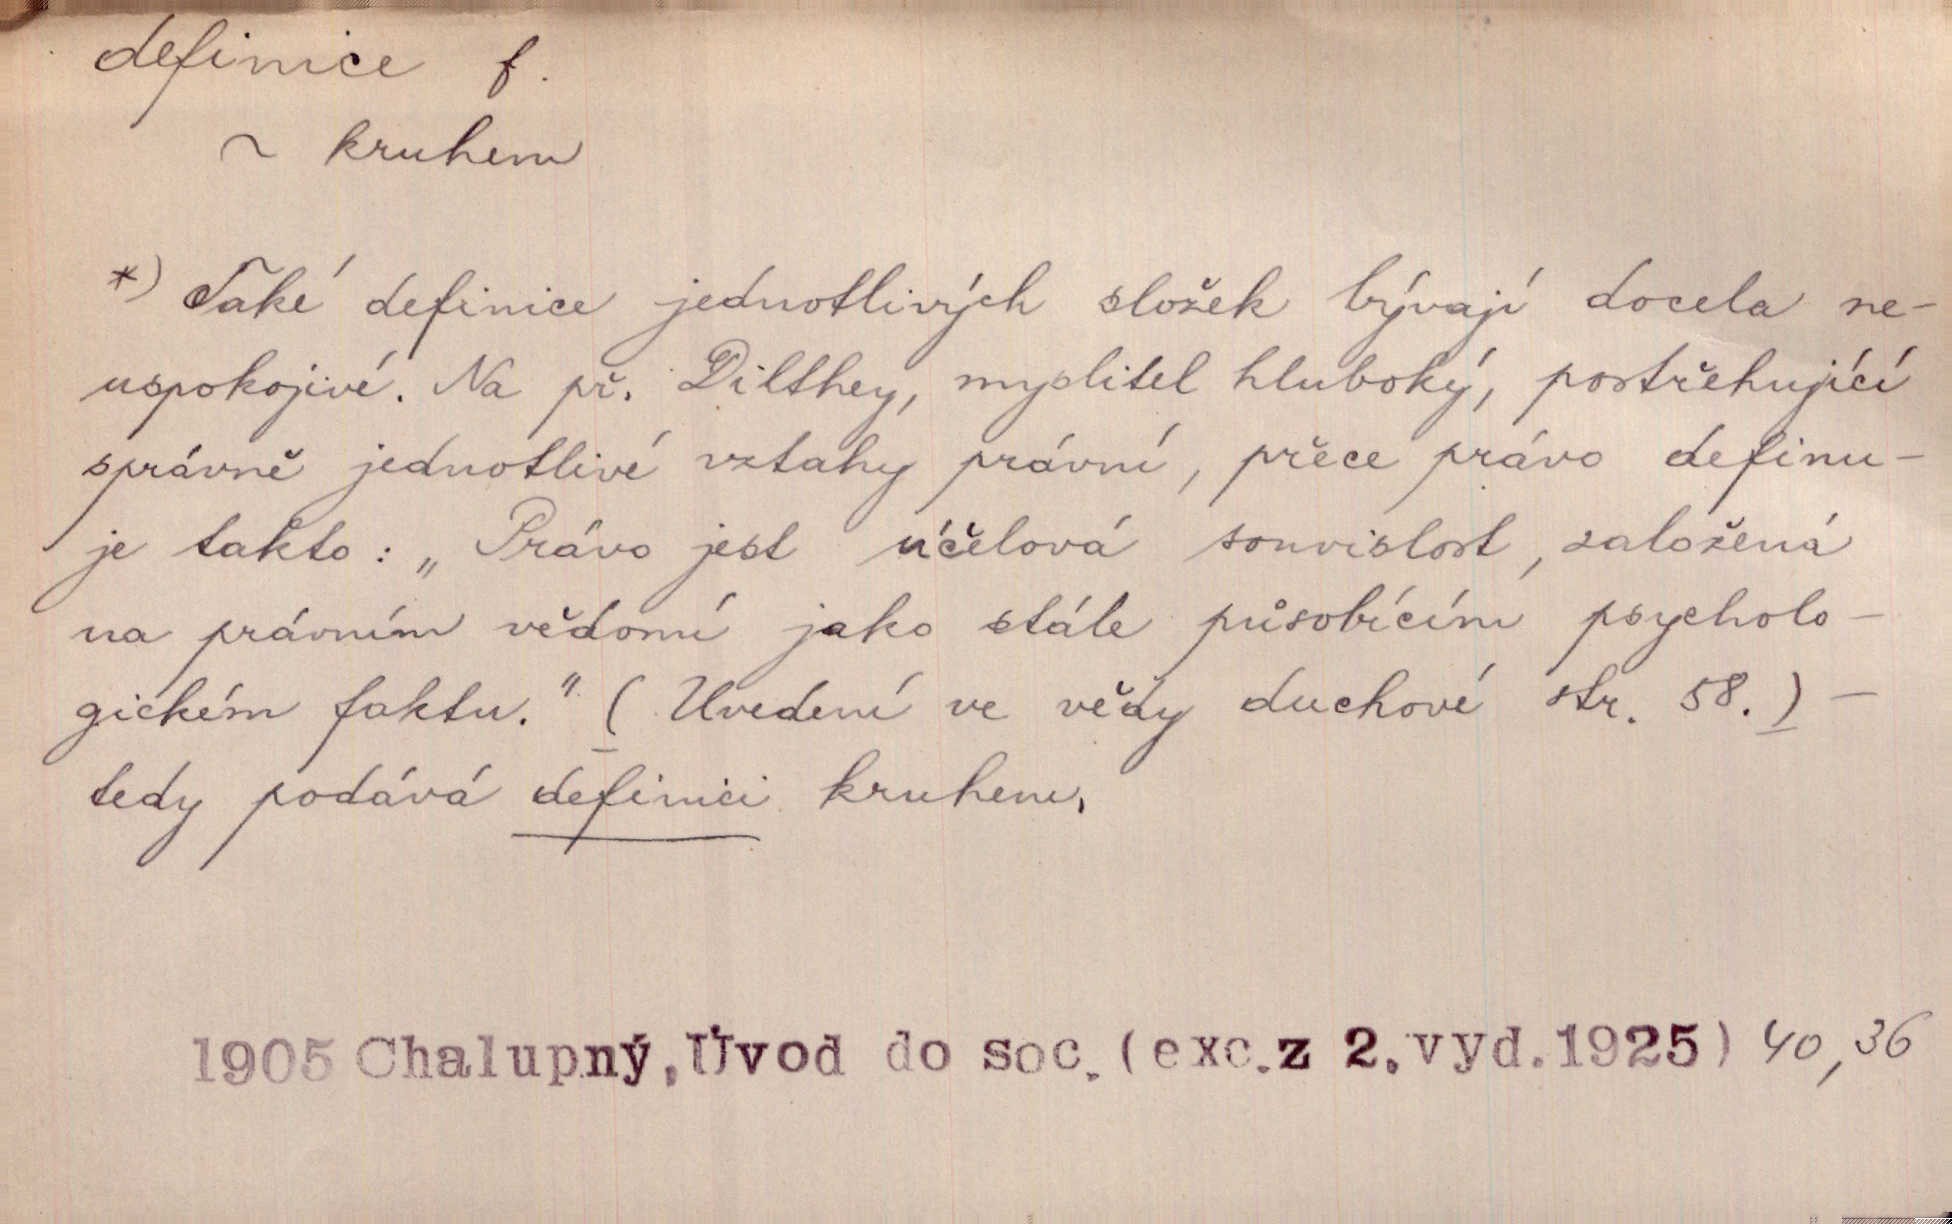 definice f.
~ kruhem
*) Také definice jednotlivých složek bývají docela ne-
uspokojivé. Na př. Dilthey, myslitel hluboký, postřehující
správně jednotlivé vztahy právní, přece právo definu-
je takto: „Právo jest účelová souvislost, založená
na právním vědomí jako stále působícím psycholo-
gickém faktu." (Uvedení ve vědy duchové str. 58.) -
tedy podává definici kruhem.
1905 Chalupný, Úvod do soc. (exc. z 2. vyd. 1925) 40,36